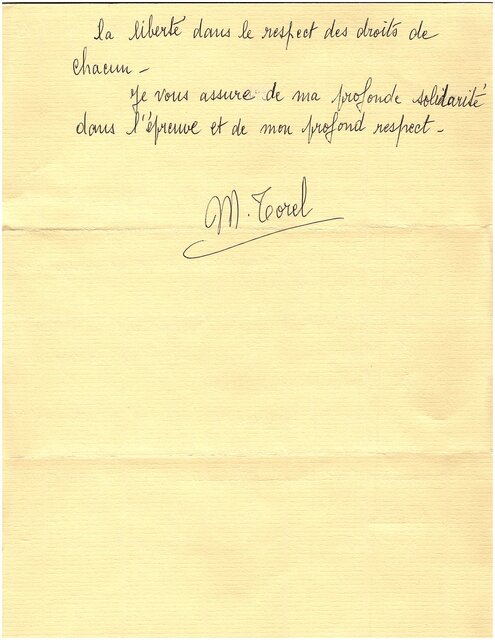 la liberté dans le respect des droits de
chacun –
Je vous assure de ma profonde solidarité
dans l'épreuve et de mon profond respect –
M. Torel